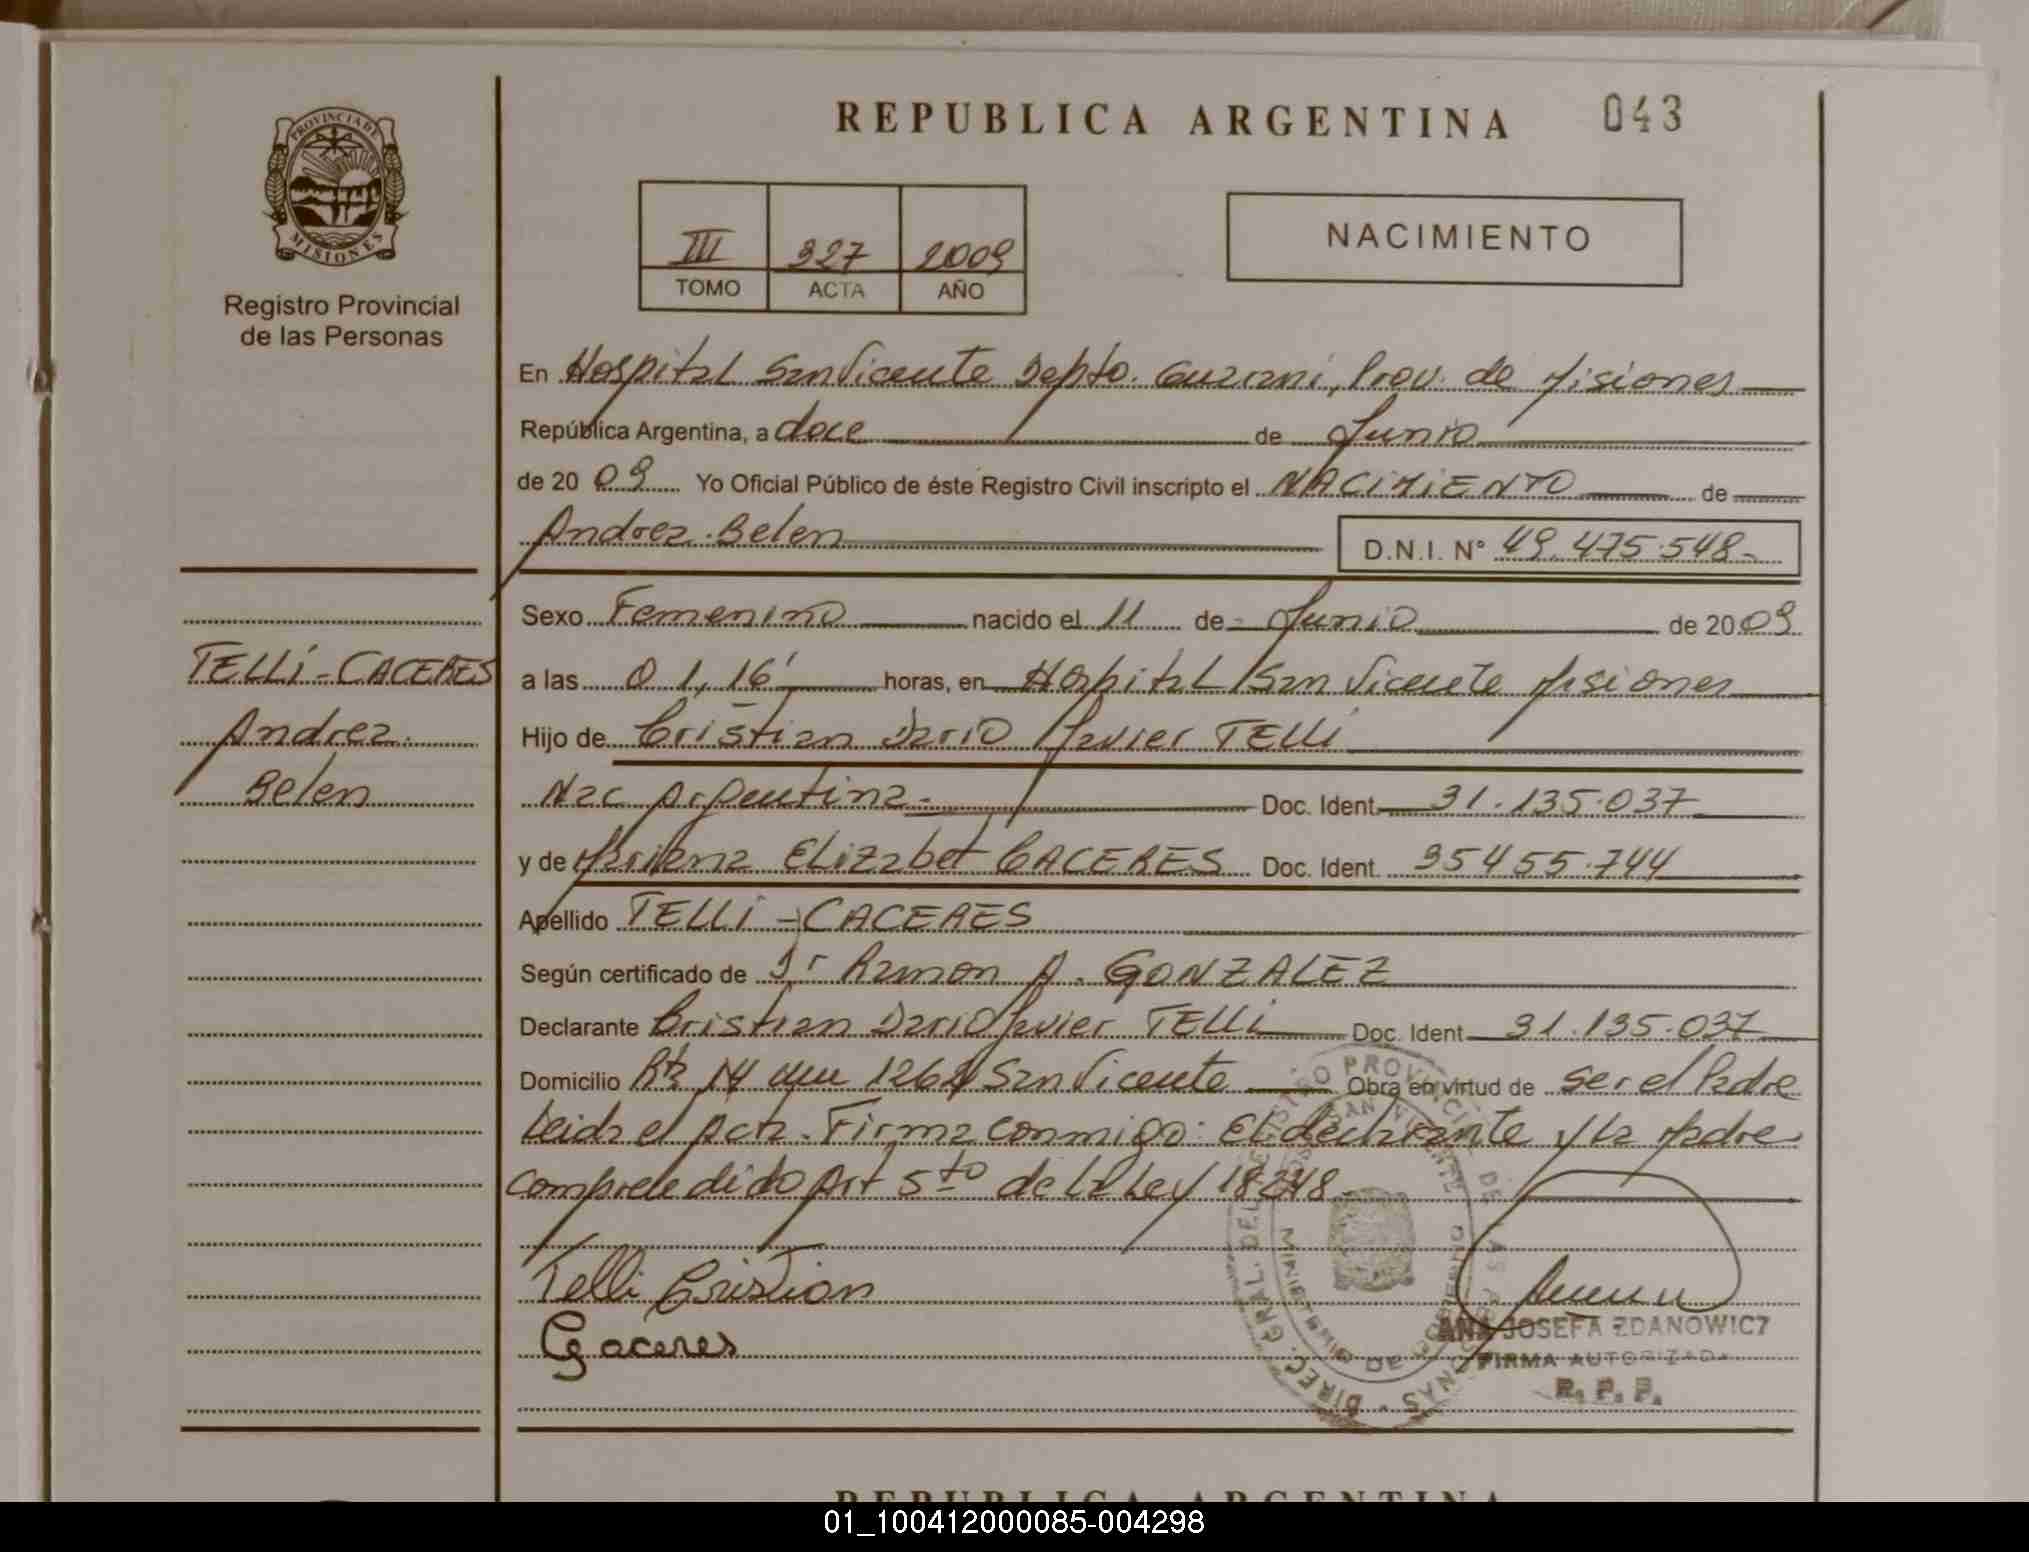 REPUBLICA ARGENTINA 043
PROVINCIA DE
MISIONES
Registro Provincial
de las Personas
III 327 2009
TOMO ACTA AÑO
NACIMIENTO
En Hospital San Vicente Depto. Guarani, Prov. de Misiones
República Argentina, a doce de Junio
de 20 09 Yo Oficial Público de éste Registro Civil inscripto el NACIMIENTO de
Andrea Belen D.N.I. N° 49.475.548
Sexo Femenino nacido el 11 de Junio de 2009
a las 01,16' horas, en Hospital San Vicente Misiones
Hijo de Cristian Dario Javier TELLI
Nac Argentina Doc. Ident. 31.135.037
y de Mariana Elizabet CACERES Doc. Ident. 35455.744
Apellido TELLI-CACERES
Según certificado de Dr Ramon A. GONZALEZ
Declarante Cristian Dario Javier TELLI Doc. Ident 31.135.037
Domicilio Rta 14 1261 San Vicente Obra en virtud de ser el Padre
Leida el Acta. Firma conmigo: El declarante y la Madre
comprendido Art 5to de la Ley 18248
Telli Cristian
Caceres
TELLI-CACERES
Andrea
Belen
ANA JOSEFA ZDANOWICZ
FIRMA AUTORIZADA
R. P. P.
DIREC. GRAL. DEL REGISTRO PROVINCIAL DE LAS PERSONAS
REPUBLICA ARGENTINA
01_100412000085-004298